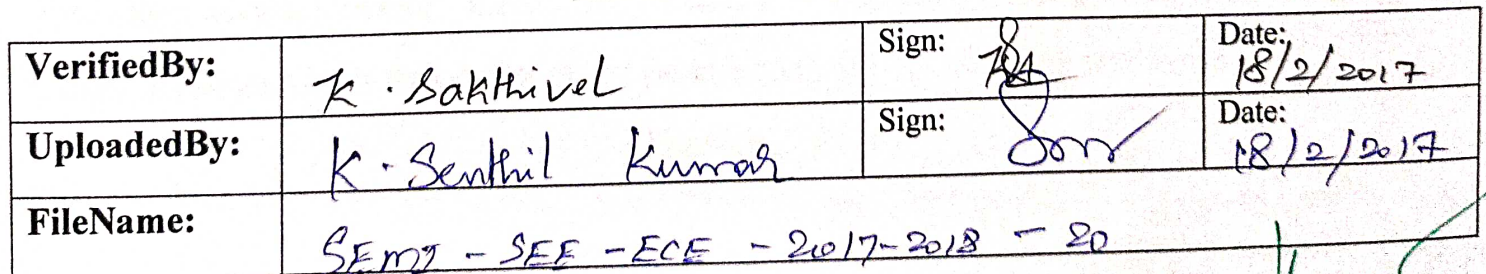 VerifiedBy: K. Sakthivel Sign: Date: 18/2/2017
UploadedBy: K. Senthil Kumar Sign: Date: 18/2/2017
FileName: - SEE - ECE - 2017-2018 - 20